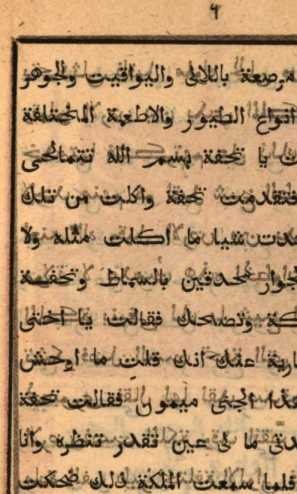 ٩
مرصعة باللالى واليواقيت والجوهر
انواع الطيور والاطعمة المختلفة
يا تحفة بسم الله تتمالحى
فتقدمت تحفة واكلت من تلك
شيا ما اكلت مثله ولا
جوار محدقين بالسماط وتحفة
وتضحك فقالت يا اختى
جارية عنك انك قلت ما اوحش
هذا الجنى ميمون فقالت تحفة
ما لى عين تقدر تنظره وانا
فلما سمعت الملكة ذلك ضحكت